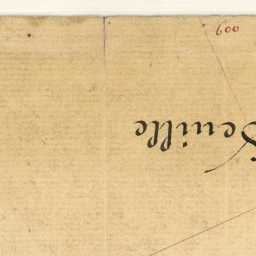 600
Feuille